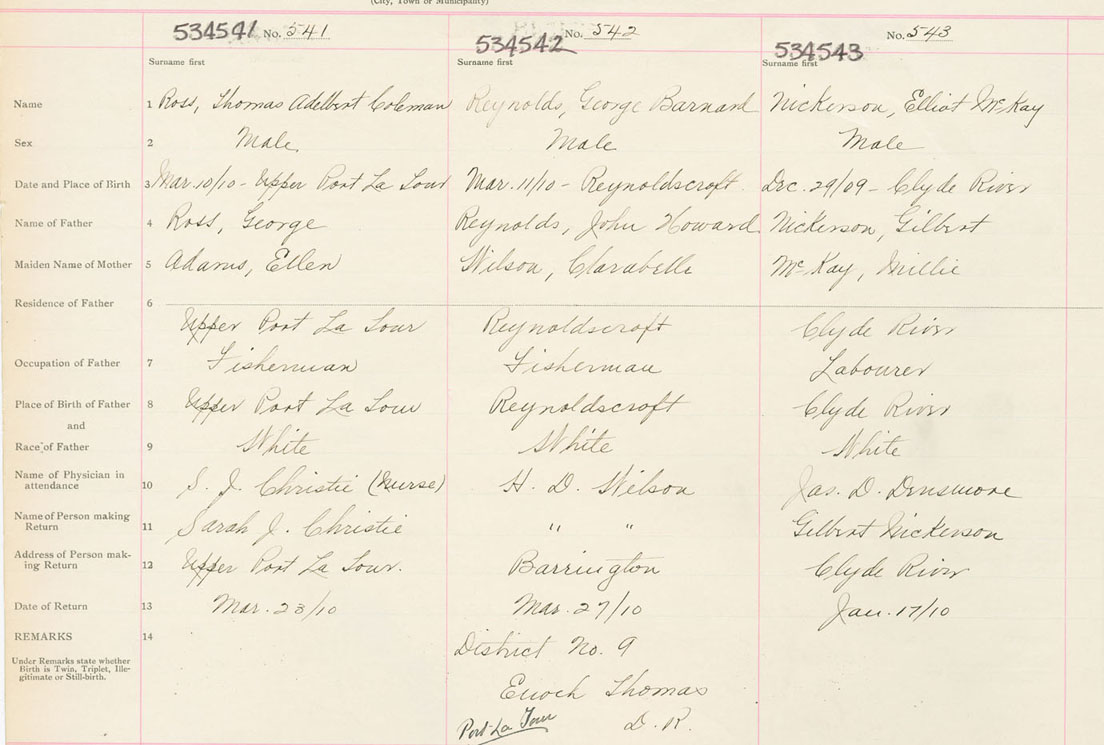 (City, Town or Municipality)
534541 No. 541 534542 No. 542 534543 No. 543
Surname first Surname first Surname first
Name 1 Ross, Thomas Adelbert Coleman Reynolds, George Barnard Nickerson, Elliot McKay
Sex 2 Male Male Male
Date and Place of Birth 3 Mar. 10/10 - Upper Port La Tour Mar. 11/10 - Reynoldscroft Dec. 29/09 - Clyde River
Name of Father 4 Ross, George Reynolds, John Howard Nickerson, Gilbert
Maiden Name of Mother 5 Adams, Ellen Wilson, Clarabelle McKay, Millie
Residence of Father 6
Upper Port La Tour Reynoldscroft Clyde River
Occupation of Father 7 Fisherman Fisherman Labourer
Place of Birth of Father 8 Upper Port La Tour Reynoldscroft Clyde River
and
Race of Father 9 White White White
Name of Physician in
attendance 10 S. J. Christie (Nurse) H. D. Wilson Jas. D. Densmore
Name of Person making
Return 11 Sarah J. Christie " " Gilbert Nickerson
Address of Person mak-
ing Return 12 Upper Port La Tour. Barrington Clyde River
Date of Return 13 Mar. 23/10 Mar. 27/10 Jan. 17/10
REMARKS 14 District No. 9
Under Remarks state whether
Birth is Twin, Triplet, Ille-
gitimate or Still-birth.
Enoch Thomas
Port La Tour D. R.